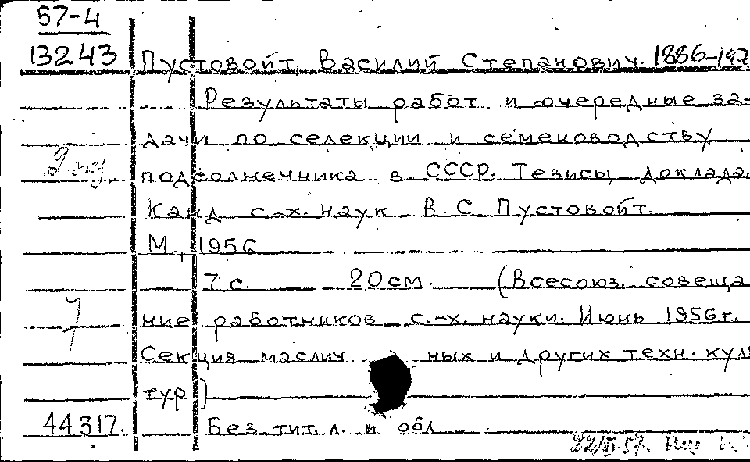 57-4
13243 Пустовойт, Василий Степанович. 1886-197
Результаты работ и очередные за-
дачи по селекции и семеноводству
подсолнечника в СССР. Тезисы доклада
Канд. с.-х. наук В.С. Пустовойт.
М., 1956
7 с. 20 см. (Всесоюз. совеща
7 ние работников с.-х. науки. Июнь 1956 г.
Секция маслич ных и других техн. куль
тур)
44317. Без тит. л. и обл.